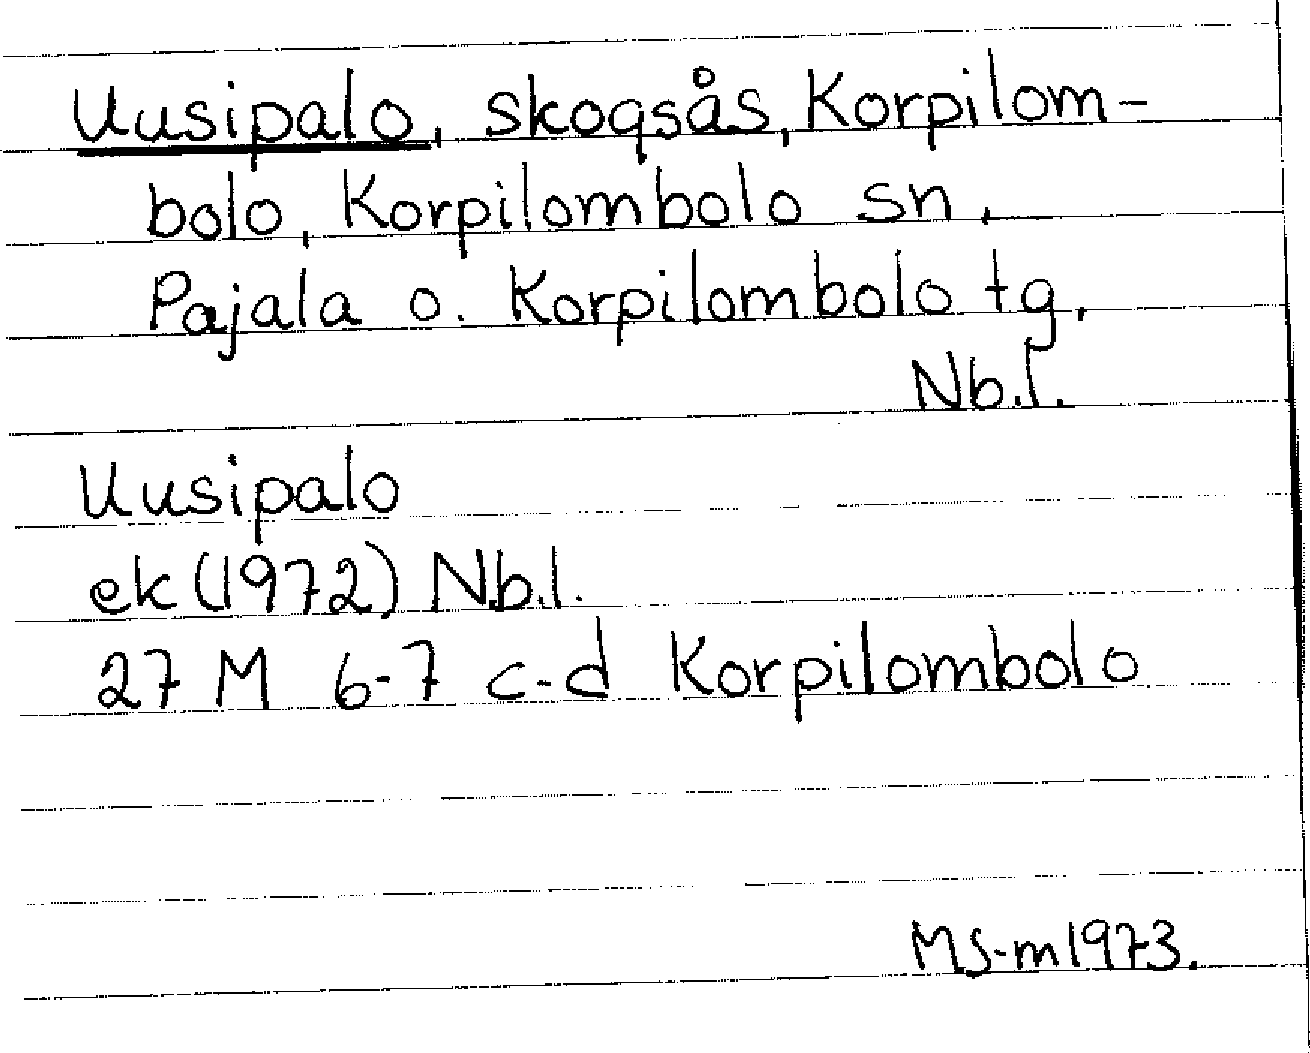 Uusipalo, skogsås, Korpilom-
bolo, Korpilombolo sn,
Pajala o. Korpilombolo tg,
Nb.l.
Uusipalo
ek (1972) Nb.l.
27 M 6-7 c-d Korpilombolo
MS-m 1973.